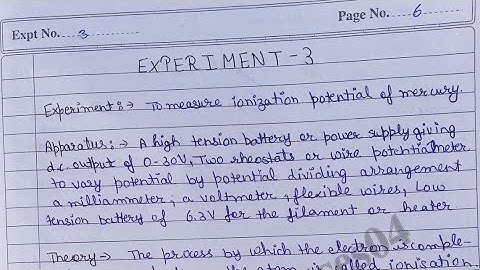 Expt No. 3
Page No. 6
EXPERIMENT-3
Experiment:→ To measure ionization potential of mercury.
Apparatus:→ A high tension battery or power supply giving
d.c. output of 0-30V, Two rheostats or wire potentiometer
to vary potential by potential dividing arrangement
a milliammeter, a voltmeter, flexible wires, Low
tension battery of 6.3V for the filament or heater
Theory:→ The process by which the electron is comple-
the atom is called ionisation